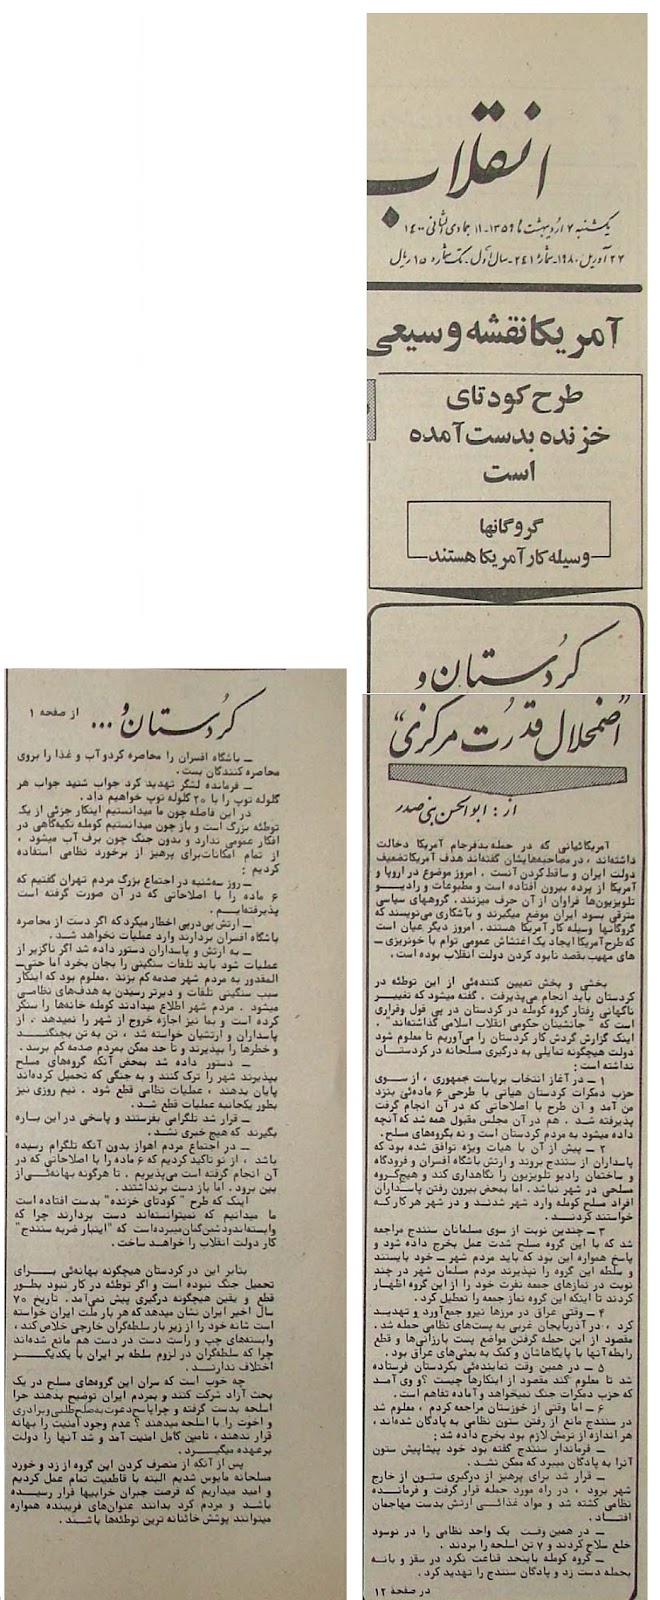 انقلاب
یکشنبه ۷ اردیبهشت ماه ۱۳۵۹-۱۱ جمادی الثانی ۱۴۰۰
۲۷ آوریل ۱۹۸۰-شماره ۲۴۱-سال اول-تک شماره ۱۵ ریال
آمریکا نقشه وسیعی
طرح کودتای
خزنده بدست آمده
است
گروگانها
وسیله کار آمریکا هستند
کردستان و
"اضمحلال قدرت مرکزی"
از: ابوالحسن بنی صدر
آمریکائیانی که در حمله بدفرجام آمریکا دخالت
داشته‌اند، در مصاحبه‌هایشان گفته‌اند هدف آمریکا تضعیف
دولت ایران و ساقط کردن آنست. امروز موضوع در اروپا و
آمریکا از پرده بیرون افتاده است و مطبوعات و رادیو
تلویزیون‌ها فراوان از آن حرف میزنند. گروههای سیاسی
مترقی بسود ایران موضع میگیرند و بآشکاری می‌نویسند که
گروگانها وسیله کار آمریکا هستند. امروز دیگر عیان است
که طرح آمریکا ایجاد یک اغتشاش عمومی توام با خونریزی ـ
های مهیب بقصد نابود کردن دولت انقلاب بوده است.
بخشی و بخش تعیین کننده‌ئی از این توطئه در
کردستان باید انجام می‌پذیرفت. گفته میشود که تغییر
ناگهانی رفتار گروه کومله در کردستان در پی قول وقراری
است که "جانشینان حکومتی انقلاب اسلامی گذاشته‌اند".
اینک گزارش گردش کار کردستان را می‌آوریم تا معلوم شود
دولت هیچگونه تمایلی به درگیری مسلحانه در کردستان
نداشته است:
۱ ـ در آغاز انتخاب بریاست جمهوری، از سوی
حزب دمکرات کردستان هیاتی با طرحی ۶ ماده‌ئی بنزد
من آمد و آن طرح با اصلاحاتی که در آن انجام گرفت
پذیرفته شد. هم در آن مجلس مقبول همه شد که آنچه
داده میشود به مردم کردستان است و نه بگروه‌های مسلح.
۲ ـ پیش از آن با هیات ویژه توافق شده بود که
پاسداران از سنندج بروند و ارتش باشگاه افسران و فرودگاه
و ساختمان رادیو تلویزیون را نگاهداری کند و هیچ گروه
مسلحی در شهر نباشد. اما بمحض بیرون رفتن پاسداران
افراد مسلح کومله وارد شهر شدند و در شهر هر کار که
خواستند کردند.
۳ ـ چندین نوبت از سوی مسلمانان سنندج مراجعه
شد که با این گروه مسلح شدت عمل بخرج داده شود و
پاسخ همواره این بود که باید مردم شهر ـ خود بایستند
و سلطه این گروه را نپذیرند مردم مسلمان شهر در چند
نوبت در نمازهای جمعه نفرت خود را از این گروه اظهار
کردند تا اینکه این گروه نماز جمعه را تعطیل کرد.
۴ ـ وقتی عراق در مرزها نیرو جمع‌آورد و تهدید
کرد، در آذربایجان غربی به پست‌های نظامی حمله شد.
مقصود از این حمله گرفتن مواضع پست بارزانی‌ها و قطع
رابطه آنها با پایگاهاشان و کمک به بعثی‌های عراق بود.
۵ ـ در همین وقت نماینده‌ئی بکردستان فرستاده
شد تا معلوم کند مقصود از اینکارها چیست؟ و وی آمد
که حزب دمکرات جنگ نمیخواهد و آماده تفاهم است.
۶ ـ اما وقتی از خوزستان مراجعه کردم، معلوم شد
در سنندج مانع از رفتن ستون نظامی به پادگان شده‌اند،
هر اندازه از نرمش لازم بود بخرج داده شد:
ـ فرماندار سنندج گفته بود خود پیشاپیش ستون
آنرا به پادگان میبرد که ممکن نشد.
ـ قرار شد برای پرهیز از درگیری ستون از خارج
شهر برود، در راه مورد حمله قرار گرفت و فرمانده
نظامی کشته شد و مواد غذائی ارتش بدست مهاجمان
افتاد.
ـ در همین وقت یک واحد نظامی را در نوسود
خلع سلاح کردند و ۷ تن اسلحه را بردند.
ـ گروه کومله باینحد قناعت نکرد در سقز و بانه
بحمله دست زد و پادگان سنندج را تهدید کرد.
در صفحه ۱۲
کردستان و...
از صفحه ۱
ـ باشگاه افسران را محاصره کرد و آب و غذا را بروی
محاصره کنندگان بست.
ـ فرمانده لشگر تهدید کرد جواب شنید جواب هر
گلوله توپ را با ۲۰ گلوله توپ خواهیم داد.
در این فاصله چون ما میدانستیم اینکار جزئی از یک
توطئه بزرگ است و باز چون میدانستیم کومله تکیه‌گاهی در
افکار عمومی ندارد و بدون جنگ چون برف آب میشود،
از تمام امکانات برای پرهیز از برخورد نظامی استفاده
کردیم:
ـ روز سه‌شنبه در اجتماع بزرگ مردم تهران گفتیم که
۶ ماده را با اصلاحاتی که در آن صورت گرفته است
پذیرفته‌ایم.
ـ ارتش پی‌درپی اخطار میکرد که اگر دست از محاصره
باشگاه افسران بردارند وارد عملیات نخواهد شد.
ـ به ارتش و پاسداران دستور داده شد اگر ناگزیر از
عملیات شود باید تلفات سنگینی را بجان بخرد اما حتی‌ـ
المقدور به مردم شهر صدمه کم بزند. معلوم بود که اینکار
سبب سنگینی تلفات و دیرتر رسیدن به هدف‌های نظامی
میشود. مردم شهر اطلاع میدادند کومله خانه‌ها را سنگر
کرده است و بما نیز اجازه خروج از شهر را نمیدهد. از
پاسداران و ارتشیان خواسته شد، تن به تن بجنگند
و خطرها را بپذیرند و تا حد ممکن بمردم صدمه کم برسد.
ـ دستور داده شد بمحض آنکه گروه‌های مسلح
بپذیرند شهر را ترک کنند و به جنگی که تحمیل کرده‌اند
پایان بدهند، عملیات نظامی قطع شود. نیم روزی نیز
بطور یکجانبه عملیات قطع شد.
ـ قرار شد تلگرامی بفرستند و پاسخی در این باره
بگیرند که هیچ خبری نشد.
ـ در اجتماع مردم اهواز بدون آنکه تلگرام رسیده
باشد، از نو تاکید کردیم که ۶ ماده را با اصلاحاتی که در
آن انجام گرفته است می‌پذیریم. تا هرگونه بهانه‌ئی از
بین برود. اما باز دست برنداشتند.
اینک که طرح "کودتای خزنده" بدست افتاده است
ما میدانیم که نمیتوانسته‌اند دست بردارند چرا که
"اینبار ضربه سنندج"
کار دولت انقلاب را خواهد ساخت.
بنابر این در کردستان هیچگونه بهانه‌ئی برای
تحمیل جنگ نبوده است و اگر توطئه در کار نبود بطور
قطع و یقین هیچگونه درگیری پیش نمی‌آمد. تاریخ ۷۰
سال اخیر ایران نشان میدهد که هر بار ملت ایران خواسته
است شانه خود را از زیر بار سلطه‌گران خارجی خلاص کند،
وابسته‌های چپ و راست دست در دست هم مانع شده‌اند
چرا که سلطه‌گران در لزوم سلطه بر ایران با یکدیگر
اختلاف ندارند.
چه خوب است که سران این گروه‌های مسلح در یک
بحث آزاد شرکت کنند و بمردم ایران توضیح بدهند چرا
اسلحه بدست گرفته و چرا پاسخ دعوت به صلح‌طلبی و برادری
و اخوت را با اسلحه میدهند؟ عدم وجود امنیت را بهانه
قرار ندهند، تامین کامل امنیت آمد و شد آنها را دولت
برعهده میگیرد.
پس از آنکه از منصرف کردن این گروه از زد و خورد
مسلحانه مایوس شدیم البته با قاطعیت تمام عمل کردیم
و امید میداریم که فرصت جبران خرابیها فرار رسیده
باشد و مردم کرد بدانند عنوان‌های فریبنده همواره
میتوانند پوشش خائنانه ترین توطئه‌ها باشند.